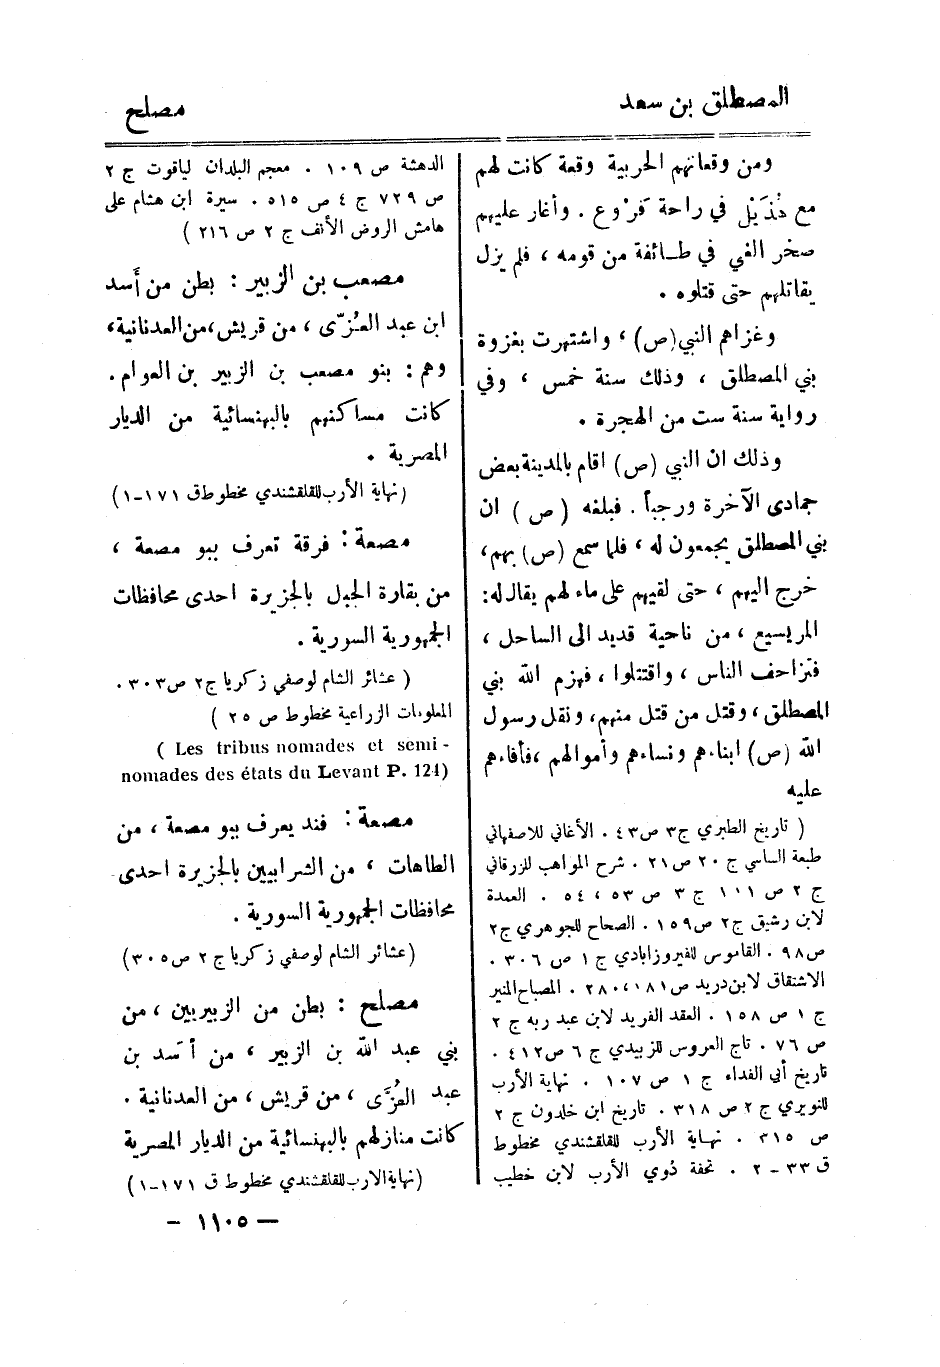 المصطلق بن سعد
مصلح
ومن وقعاتهم الحربية وقعة كانت لهم
مع هُذَيْل في راحة فَرْوع . وأغار عليهم
صخر الغي في طائفة من قومه ، فلم يزل
يقاتلهم حتى قتلوه .
وغزاهم النبي (ص) ، واشتهرت بغزوة
بني المصطلق ، وذلك سنة خمس ، وفي
رواية سنة ست من الهجرة .
وذلك ان النبي (ص) اقام بالمدينة بعض
جمادى الآخرة ورجباً . فبلغه (ص) ان
بني المصطلق يجمعون له ، فلما سمع (ص) بهم،
خرج اليهم ، حتى لقيهم على ماء لهم يقال له:
المريسيع ، من ناحية قديد الى الساحل ،
فتزاحف الناس ، واقتتلوا ، فهزم الله بني
المصطلق ، وقتل من قتل منهم، ونقل رسول
الله (ص) ابناءهم ونساءهم وأموالهم ،فأفاءهم
عليه
( تاريخ الطبري ج٣ ص٤٣ . الأغاني للاصفهاني
طبعة الساسي ج ٢٠ ص٢١ . شرح المواهب للزرقاني
ج ٢ ص ١٠١ ج ٣ ص ٥٣ ، ٥٤ . العمدة
لابن رشيق ج٢ ص١٥٩ . الصحاح للجوهري ج٢
ص٩٨ . القاموس للفيروزابادي ج ١ ص ٣٠٦ .
الاشتقاق لابن دريد ص ١٨١، ٢٨٠ . المصباح المنير
ج ١ ص ١٥٨ . العقد الفريد لابن عبد ربه ج ٢
ص ٧٦ . تاج العروس للزبيدي ج ٦ ص٤١٢ .
تاريخ أبي الفداء ج ١ ص ١٠٧ . نهاية الأرب
للنويري ج ٢ ص ٣١٨ . تاريخ ابن خلدون ج ٢
ص ٣١٥ . نهاية الأرب للقلقشندي مخطوط
ق ٣٣ - ٢ . تحفة ذوي الأرب لابن خطيب
الدهشة ص ١٠٩ . معجم البلدان لياقوت ج ٢
ص ٧٢٩ ج ٤ ص ٥١٥ . سيرة ابن هشام على
هامش الروض الأنف ج ٢ ص ٢١٦ )
مصعب بن الزبير : بطن من أسد
ابن عبد العُزّى ، من قريش،من العدنانية،
وهم : بنو مصعب بن الزبير بن العوام .
كانت مساكنهم بالبهنسائية من الديار
المصرية .
(نهاية الأرب للقلقشندي مخطوط ق ١٧١-١)
مصعة : فرقة تعرف ببو مصعة ،
من بقارة الجبل بالجزيرة احدى محافظات
الجمهورية السورية .
( عشائر الشام لوصفي زكريا ج٢ ص٣٠٣ .
المعلومات الزراعية مخطوط ص ٢٥ )
( Les tribus nomades et semi -
nomades des états du Levant P. 124)
مصعة : فند يعرف ببو مصعة ، من
الطاهات ، من الشرابيين بالجزيرة احدى
محافظات الجمهورية السورية .
(عشائر الشام لوصفي زكريا ج ٢ ص٣٠٥)
مصلح : بطن من الزبيريين ، من
بني عبد الله بن الزبير ، من أسد بن
عبد العُزَّى ، من قريش ، من العدنانية .
كانت منازلهم بالبهنسائية من الديار المصرية
(نهاية الارب للقلقشندي مخطوط ق ١٧١-١)
— ١١٠٥ —